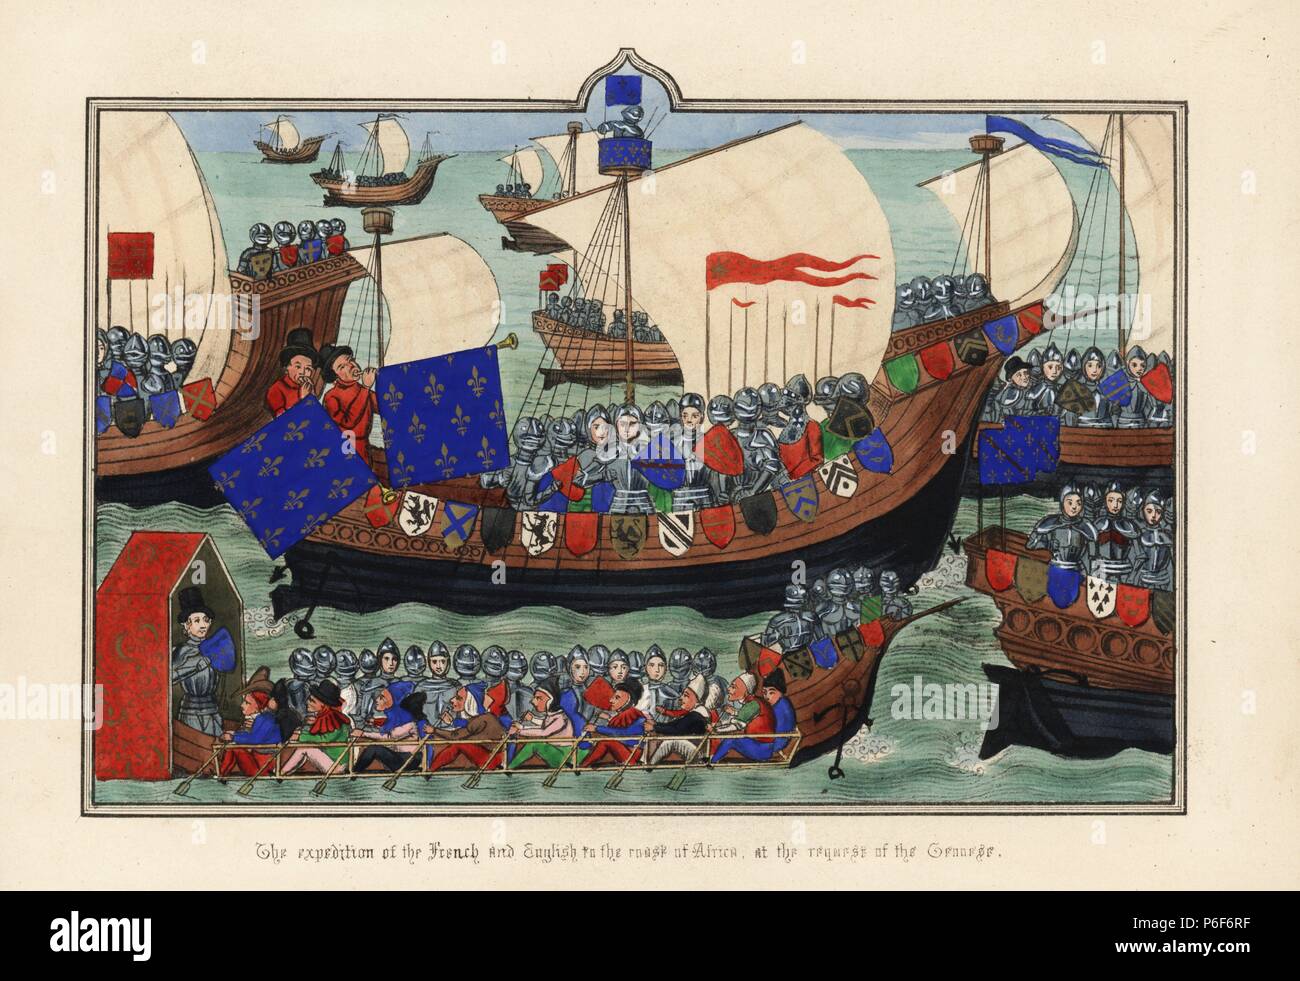 The expedition of the French and English to the coast of Africa, at the request of the Genoese.
a
alamy
a
a
a
a
alamy
Image ID: P6F6RF
www.alamy.com